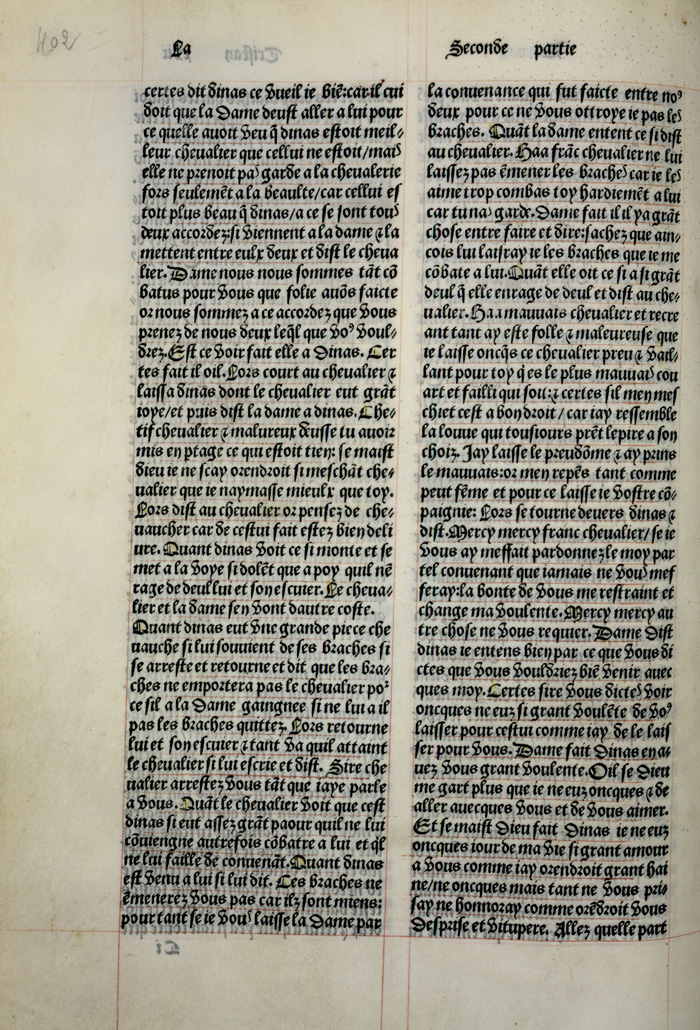 402
La
Seconde partie
certes dit dinas ce vueil ie biē:car il cui
doit que la dame deust aller a lui pour
ce quelle auoit veu q̄ dinas estoit meil-
leur cheualier que cellui ne estoit/mais
elle ne prenoit pas garde a la cheualerie
fors seulemēt a la beaulte/car cellui es
toit plus beau q̄ dinas/a ce se sont tous
deux accordez:si viennent a la dame ⁊ la
mettent entre eulx deux et dist le cheua
lier. Dame nous nous sommes tāt cō
batus pour vous que folie auōs faicte
or nous sommez a ce accordez que vous
prenez de nous deux leq̄l que voꝰ voul-
drez. Est ce voir fait elle a Dinas. Cer
tes fait il oil. Lors court au cheualier ⁊
laissa dinas dont le cheualier eut grāt
ioye/et puis dist la dame a dinas. Che-
tif cheualier ⁊ malureux deusse tu auoir
mis en ptage ce qui estoit tien: se maist
dieu ie ne scay orendroit si meschāt che-
ualier que ie naymasse mieulx que toy.
Lors dist au cheualier or pensez de che-
uaucher car de cestui fait estez bien deli
ure. Quant dinas voit ce si monte et se
met a la voye si dolēt que a poy quil nē
rage de deul lui et son escuier. Le cheua-
lier et la dame sen vont dautre coste.
Quant dinas eut vne grande piece che
uauche si lui souuient de ses braches si
se arreste et retourne et dit que les bra-
ches ne emportera pas le cheualier poꝛ
ce sil a la Dame gaingnee si ne lui a il
pas les braches quittez. Lors retourne
lui et son escuier ⁊ tant va quil attaint
le cheualier si lui escrie et dist. Sire che
ualier arrestez vous tāt que iaye parle
a vous. Quāt le cheualier voit que cest
dinas si eut assez grāt paour quil ne lui
cōuiengne autrefois cōbatre a lui et q̄l
ne lui faille de conuenāt. Quant dinas
est venu a lui si lui dit. Ces braches ne
ēmenerez vous pas car ilz sont miens:
pour tant se ie vous laisse la Dame par
la conuenance qui fut faicte entre noꝰ
deux pour ce ne vous ottroye ie pas les
braches. Quāt la dame entent ce si dist
au cheualier. Haa frāc cheualier ne lui
laissez pas ēmener les braches car ie les
aime trop combas toy hardiemēt a lui
car tu nas garde. Dame fait il il ya grāt
chose entre faire et dire:sachez que ain-
cois lui lairay ie les braches que ie me
cōbate a lui. Quāt elle oit ce si a si grāt
deul q̄ elle enrage de deul et dist au che-
ualier. Haa mauuais cheualier et recre
ant tant ay este folle ⁊ maleureuse que
ie laisse oncq̄s ce cheualier preu ⁊ vail-
lant pour toy q̄ es le plus mauuais cou
art et failli qui soit: ⁊ certes sil men mes
chiet cest a bon droit / car iay ressemble
la louue qui tousiours prēt le pire a son
choiz. Jay laisse le preudōme ⁊ ay prins
le mauuais:or men repēs tant comme
peut fēme et pour ce laisse ie vostre cō-
paignie: Lors se tourne deuers dinas ⁊
dist. Mercy mercy franc cheualier/se ie
vous ay meffait pardonnez le moy par
tel conuenant que iamais ne vous mef
feray:la bonte de vous me restraint et
change ma voulente. Mercy mercy au
tre chose ne vous requier. Dame dist
dinas ie entens bien par ce que vous di
ctes que vous vouldriez biē venir auec
ques moy. Certes sire vous dictes voir
oncques ne euz si grant voulēte de voꝰ
laisser pour cestui comme iay de le lais
ser pour vous. Dame fait Dinas en a-
uez vous grant voulente. Oil se Dieu
me gart plus que ie ne euz oncques ⁊ de
aller auecques vous et de vous aimer.
Et se maist Dieu fait Dinas ie ne euz
oncques iour de ma vie si grant amour
a vous comme iay orendroit grant hai
ne/ne oncques mais tant ne vous pri-
say ne honnoray comme orēdroit vous
desprise et vitupere. Allez quelle part